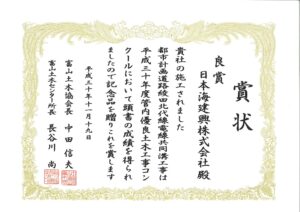 賞状
良賞
日本海建興株式会社 殿
貴社の施工されました
都市計画道路綾田北代線電線共同溝工事は
平成三十年度管内優良土木工事コン
クールにおいて頭書の成績を得られ
ましたので記念品を贈りこれを賞します
平成三十年十一月十九日
富山土木協会長 中田信夫
富山土木センター所長 長谷川尚